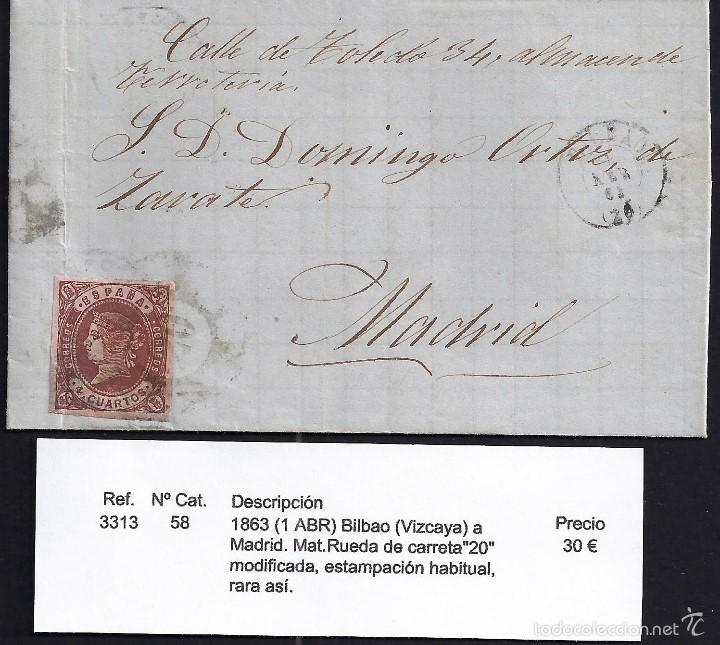 Calle de Toledo 34, almacen de
Ferreteria.
S. D. Domingo Ortiz, de
Zarate.
ABR
63
(20)
Madrid
ESPAÑA
CORREOS
CORREOS
4 CUARTOS
Ref. Nº Cat. Descripción Precio
3313 58 1863 (1 ABR) Bilbao (Vizcaya) a 30 €
Madrid. Mat.Rueda de carreta"20"
modificada, estampación habitual,
rara así.
todocoleccion.net